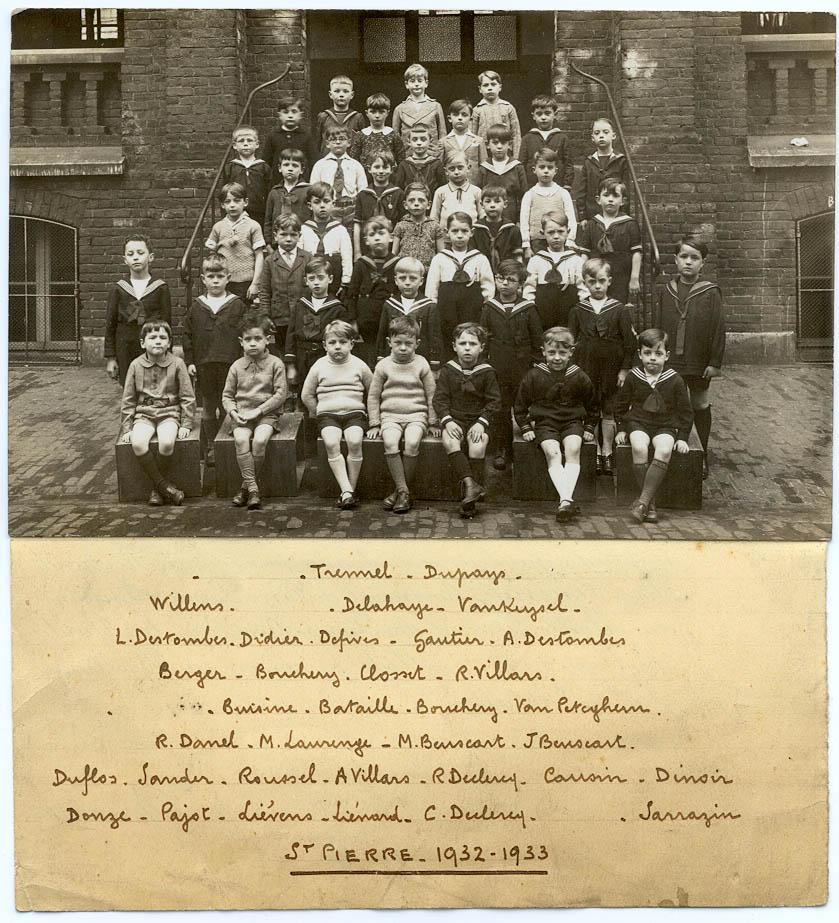 . . Tremel - Dupays -
Willens. . Delahaye - VanKeysel -
L. Destombes. Didier. Defives - Gautier. A. Destombes
Berger - Bouchery. Closset - R. Villars.
. . Buisine. Bataille. Bouchery. Van Peteghem.
R. Danel. M. Laurenge - M. Beuscart. J Beuscart.
Duflos. Sander. Roussel. A Villars. R Declercq. Cousin - Dinoir
Donze - Pajot. Liévens. Liénard. C. Declercq. . Sarrazin
ST PIERRE. 1932-1933